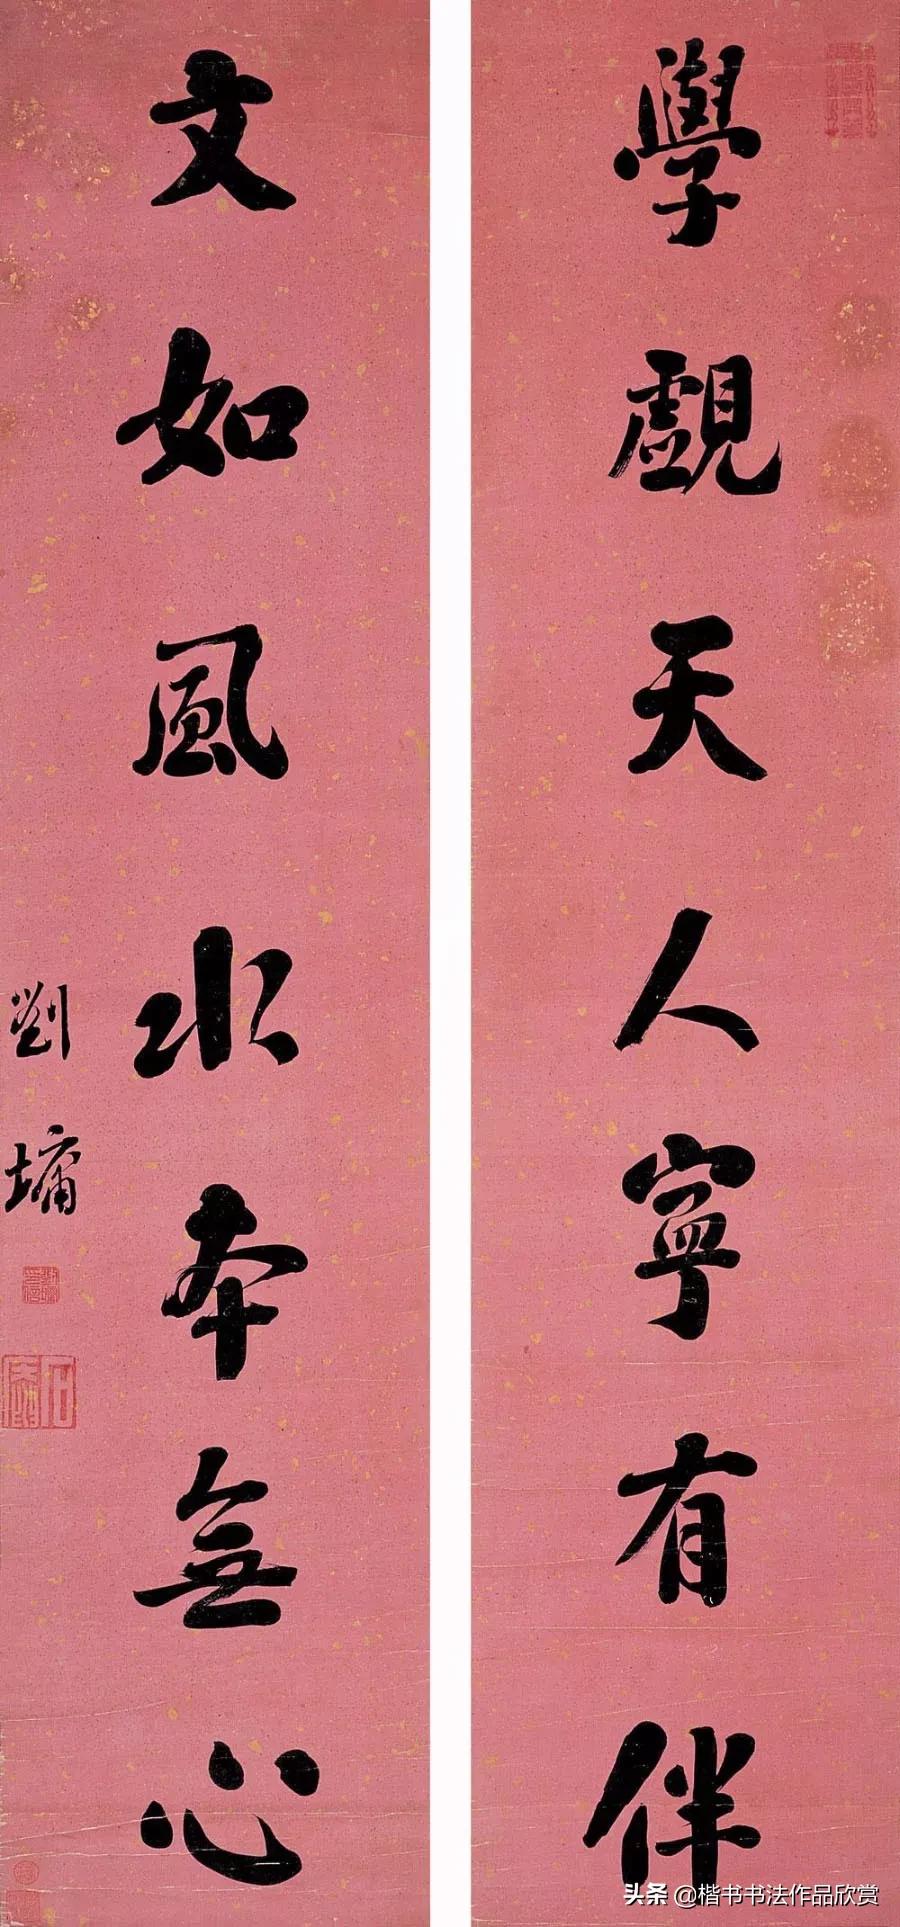 學覰天人寧有伴
文如風水本無心
劉墉
头条 @楷书书法作品欣赏